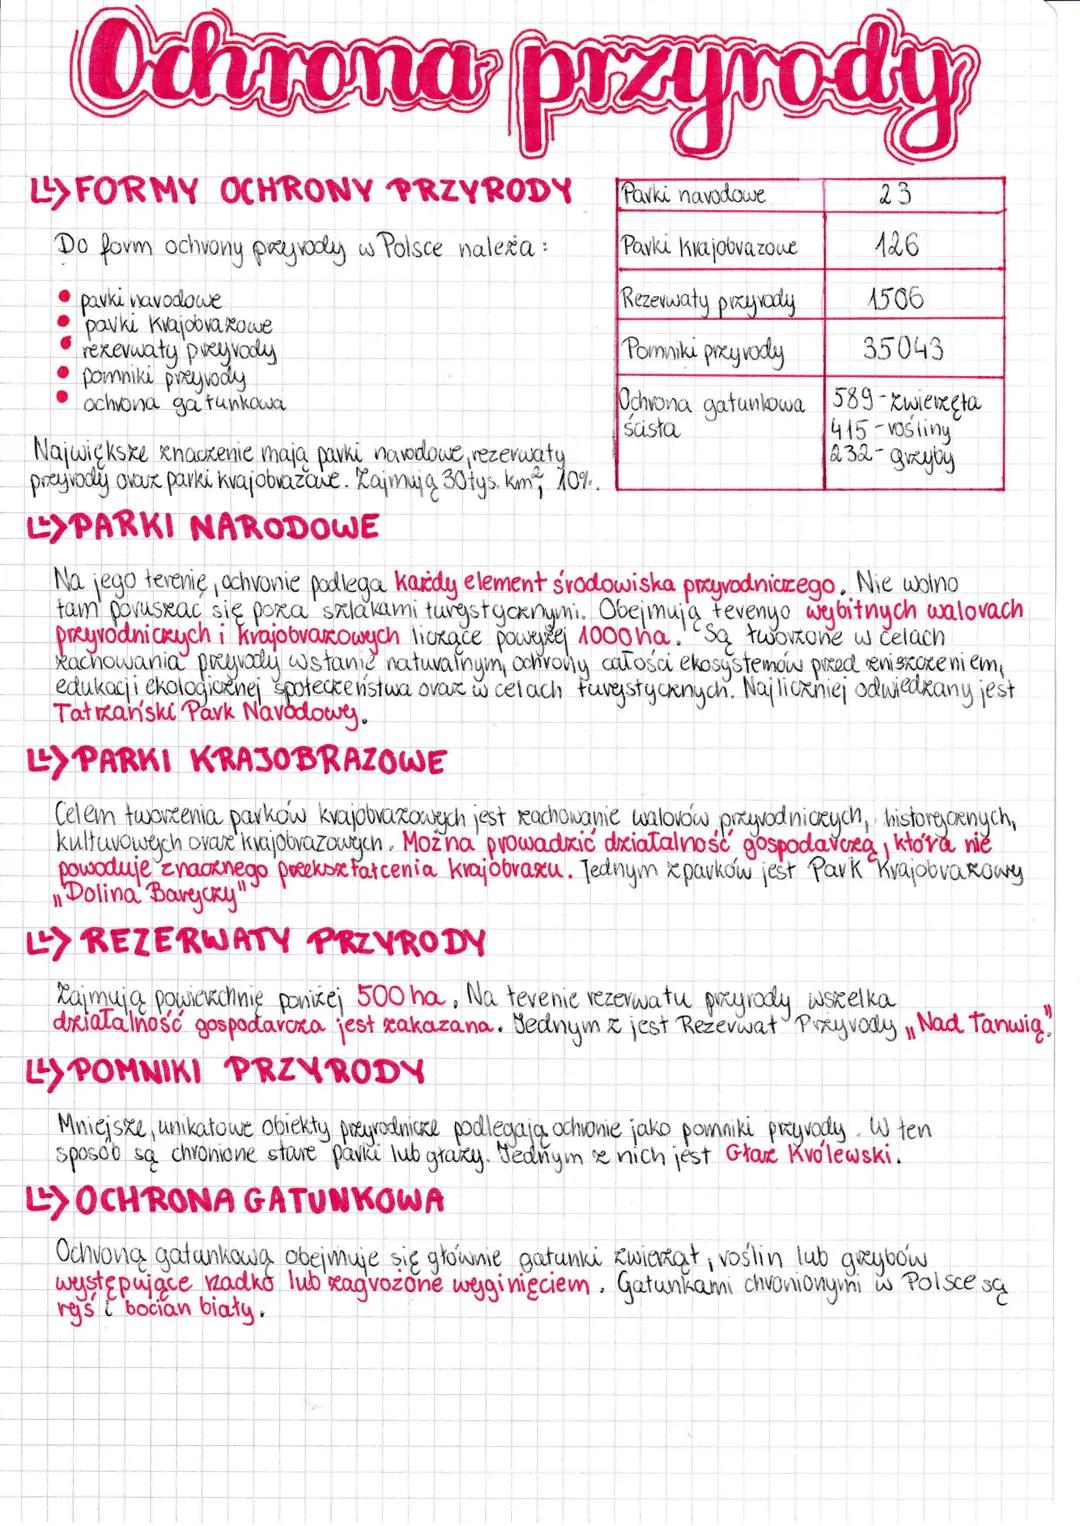 Ochrona przyrody
↳> FORMY OCHRONY PRZYRODY
Do form ochrony przyrody w Polsce należą:
• parki narodowe
• parki krajobrazowe
• rezerwaty przyrody
• pomniki przyrody
• ochrona gatunkowa
Największe znaczenie mają parki narodowe, rezerwaty
przyrody oraz parki krajobrazowe. Zajmują 30 tys. km², 10%.
Parki narodowe 23
Parki krajobrazowe 126
Rezerwaty przyrody 1506
Pomniki przyrody 35043
Ochrona gatunkowa 589 - zwierzęta
ścisła 415 - rośliny
232 - grzyby
↳> PARKI NARODOWE
Na jego terenie, ochronie podlega każdy element środowiska przyrodniczego. Nie wolno
tam poruszać się poza szlakami turystycznymi. Obejmują tereny o wybitnych walorach
przyrodniczych i krajobrazowych liczące powyżej 1000 ha. Są tworzone w celach
zachowania przyrody w stanie naturalnym, ochrony całości ekosystemów przed zniszczeniem,
edukacji ekologicznej społeczeństwa oraz w celach turystycznych. Najliczniej odwiedzany jest
Tatrzański Park Narodowy.
↳> PARKI KRAJOBRAZOWE
Celem tworzenia parków krajobrazowych jest zachowanie walorów przyrodniczych, historycznych,
kulturowych oraz krajobrazowych. Można prowadzić działalność gospodarczą, która nie
powoduje znacznego przekształcenia krajobrazu. Jednym z parków jest Park Krajobrazowy
„Dolina Baryczy"
↳> REZERWATY PRZYRODY
Zajmują powierzchnię poniżej 500 ha. Na terenie rezerwatu przyrody wszelka
działalność gospodarcza jest zakazana. Jednym z jest Rezerwat Przyrody „Nad Tanwią".
↳> POMNIKI PRZYRODY
Mniejsze, unikatowe obiekty przyrodnicze podlegają ochronie jako pomniki przyrody. W ten
sposób są chronione stare parki lub głazy. Jednym z nich jest Głaz Królewski.
↳> OCHRONA GATUNKOWA
Ochroną gatunkową obejmuje się głównie gatunki zwierząt, roślin lub grzybów
występujące rzadko lub zagrożone wyginięciem. Gatunkami chronionymi w Polsce są
ryś i bocian biały.